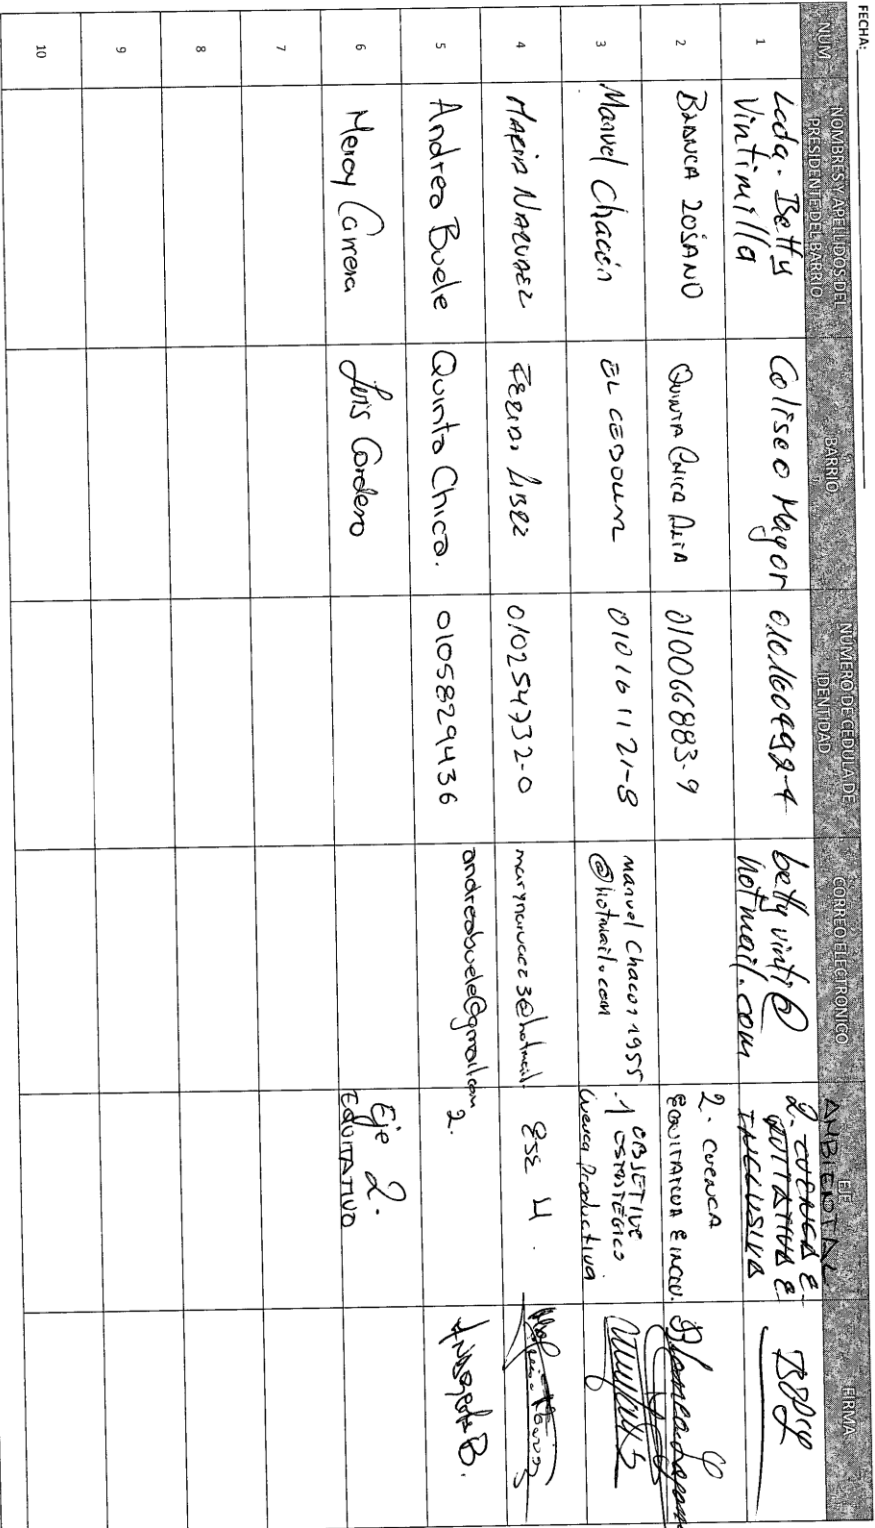 FECHA:
NUM
NOMBRES Y APELLIDOS DEL
PRESIDENTE DEL BARRIO
BARRIO
NUMERO DE CEDULA DE
IDENTIDAD
CORREO ELECTRONICO
EJE
AMBIENTAL
FIRMA
1
Lcda. Betty
Vintimilla
Coliseo Mayor
010160492-4
bettyvinti@
hotmail.com
2. CUENCA E-
QUITATIVA E
INCLUSIVA
2
BLANCA LOSANO
QUINTA CHICA ALTA
010066883-9
2. CUENCA
EQUITATIVA E INCLU
3
Manuel Chacón
EL CEBOLLAR
010161121-8
Manuel Chacon 1955
@hotmail.com
1 OBJETIVE
ESTRATÉGICO
Cuenca Productiva
4
MARIA NARVAEZ
FERIA LIBRE
010254732-0
@hotmail.
EJE 4.
5
Andrea Buele
Quinta Chica.
0105829436
andreabuele@gmail.com
2.
6
Mercy Carrera
Luis Cordero
Eje 2.
EQUITATIVO
7
8
9
10